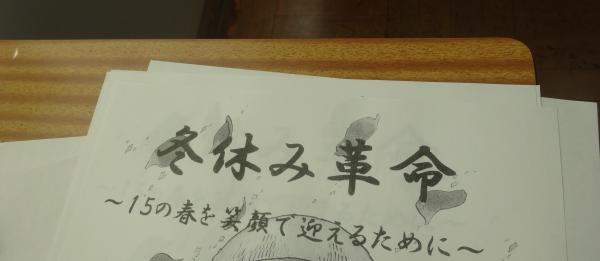 冬休み革命
～15の春を笑顔で迎えるために～